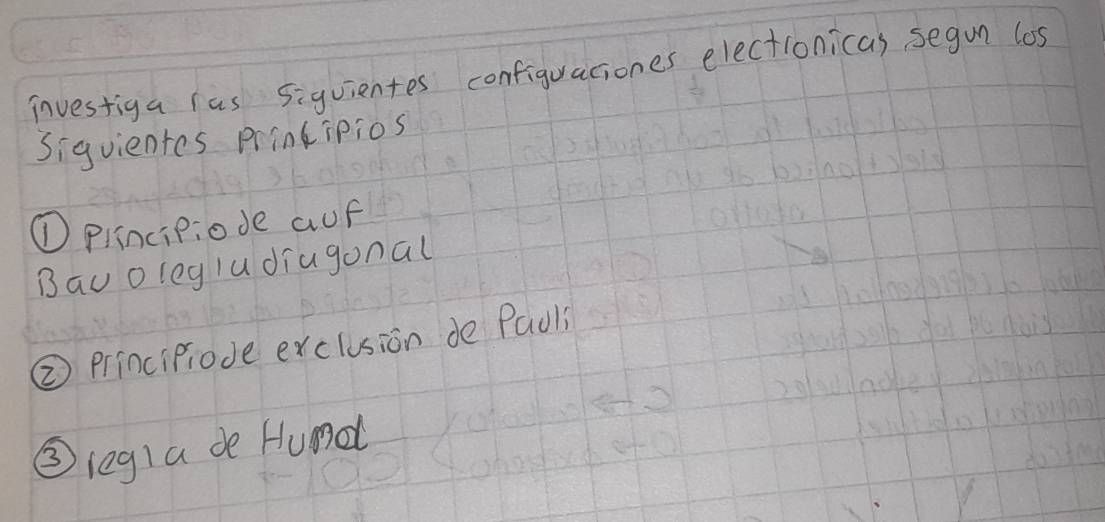 investiga las siguientes configuraciones electronicas segun los
siguientes principios
① Principio de auf
Bau o regla diagonal
② Principio de exclusión de Pauli
③ regla de Humd